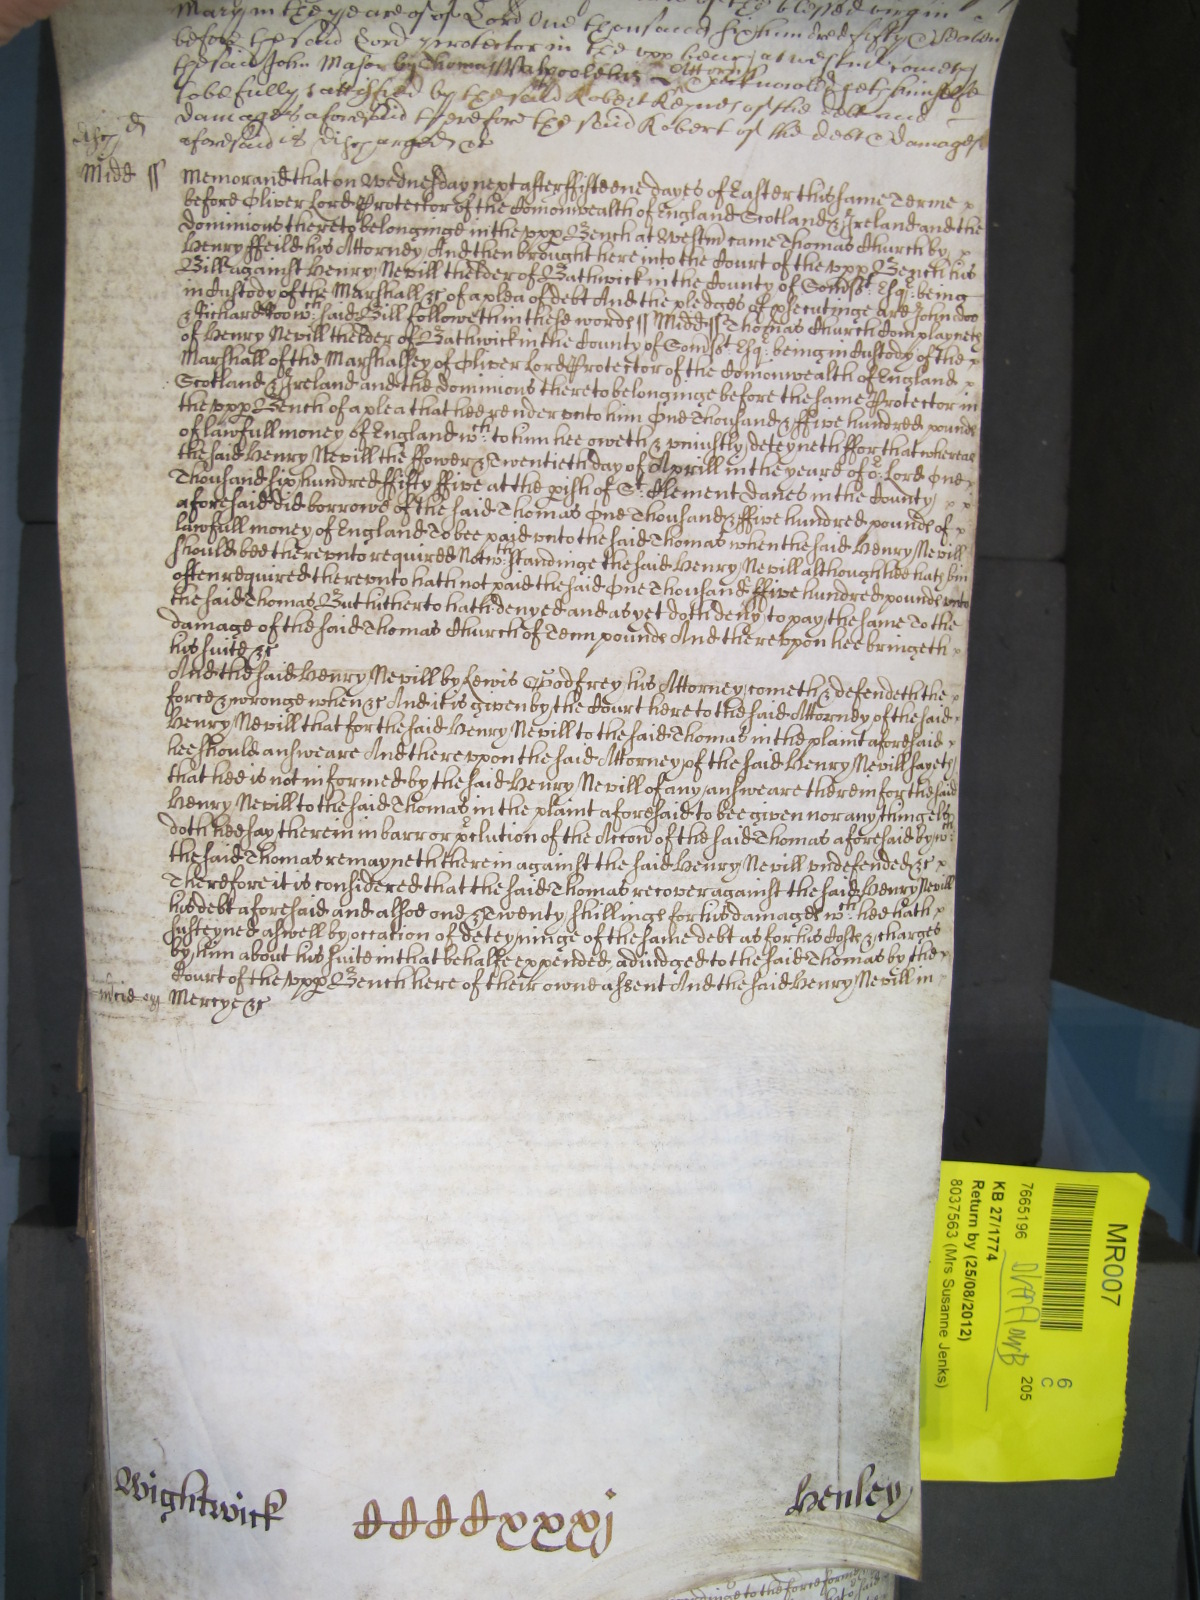 Mary in the yeare of or Lord One thousand six hundred fifty & seaven
before the said Lord protector in the vpp bench at westmr cometh
the said John Major by Thomas Walpoole his Attorney & acknowledgeth himselfe
to be fully satisfied by the said Robert Keynes of the debt and
damages aforesaid therefore the said Robert of the debt & damages
aforesaid is dischargedd &c
Midd ss Memorand that on Wednesday next after ffifteene dayes of Easter this same Terme x
before Oliver Lord Protector of the Comonwealth of England Scotland & Ireland and the
dominions thereto belonginge in the vpp Bench at Westmr came Thomas Church by x x
Henry ffeild his Attorney And then brought here into the Court of the vpp Bench his
Bill against Henry Nevill thelder of Bathwick in the County of Somsst Esqr being
in Custody of the Marshall &c of a plea of debt And the pledges of psecutinge are John doo
& Richard Roo wch said Bill followeth in these words ss Midd ss Thomas Church Complayneth
of Henry Nevill thelder of Bathwick in the County of Somsst Esqr being in Custody of the x
Marshall of the Marshalsey of Oliver Lord Protector of the Comonwealth of England x
Scotland & Ireland and the dominions thereto belonginge before the same Protector in
the vpp Bench of a plea that hee render vnto him One Thousand & ffive hundred pounds
of lawfull money of England wch to him hee oweth & vniustly deteyneth ffor that whereas
the said Henry Nevill the ffower & Twentieth day of Aprill in the yeare of or Lord One
Thousand six hundred ffifty ffive at the pish of St Clement danes in the County x x
aforesaid did borrowe of the said Thomas One Thousand & ffive hundred pounds of x
lawfull money of England To bee paid vnto the said Thomas when the said Henry Nevill
should bee therevnto required Notwthstandinge the said Henry Nevill although hee hath bin
often required therevnto hath not paid the said One Thousand & ffive hundred pounds vnto
the said Thomas But hitherto hath denyed and as yet doth deny to pay the same To the
damage of the said Thomas Church of Tenn pounds And therevpon hee bringeth x
his suite &c
And the said Henry Nevill by Lewis Godfrey his Attorney cometh & defendeth the x
force & wronge when &c And it is given by the Court here to the said Attorney of the said
Henry Nevill that for the said Henry Nevill to the said Thomas in the plaint aforesaid
hee should answeare And therevpon the said Attorney of the said Henry Nevill sayeth
that hee is not informed by the said Henry Nevill of any answeare therein for the said
Henry Nevill to the said Thomas in the plaint aforesaid to bee given nor any thinge els
doth hee say therein in barr or pclution of the Accon of the said Thomas aforesaid by wch
the said Thomas remayneth therein against the said Henry Nevill vndefended &c x
Therefore it is considered that the said Thomas recover against the said Henry Nevill
his debt aforesaid and alsoe one & Twenty shillings for his damages wch hee hath x
susteyned aswell by occation of deteyninge of the same debt as for his Costs & charges
by him about his suite in that behalfe expended adiudged to the said Thomas by the
Court of the vpp Bench here of their owne assent And the said Henry Nevill in
Mercye &c
Wightwick
ccccxxxj
Henley
MR007
6
C
205
7665196
KB 27/1774
Return by (25/08/2012)
8037563 (Mrs Susanne Jenks)